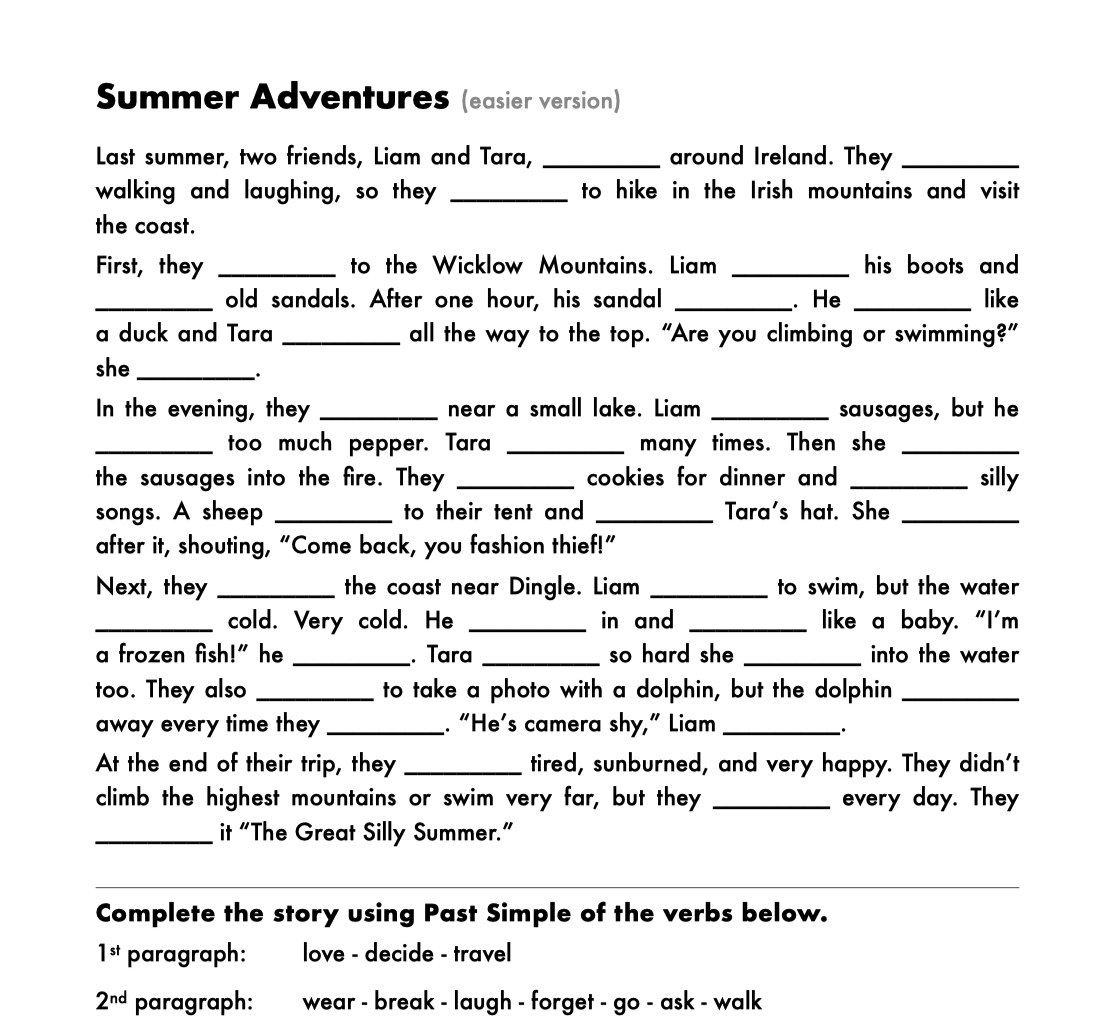 Summer Adventures (easier version)
Last summer, two friends, Liam and Tara, _________ around Ireland. They _________
walking and laughing, so they _________ to hike in the Irish mountains and visit
the coast.
First, they _________ to the Wicklow Mountains. Liam _________ his boots and
_________ old sandals. After one hour, his sandal _________. He _________ like
a duck and Tara _________ all the way to the top. “Are you climbing or swimming?”
she _________.
In the evening, they _________ near a small lake. Liam _________ sausages, but he
_________ too much pepper. Tara _________ many times. Then she _________
the sausages into the fire. They _________ cookies for dinner and _________ silly
songs. A sheep _________ to their tent and _________ Tara’s hat. She _________
after it, shouting, “Come back, you fashion thief!”
Next, they _________ the coast near Dingle. Liam _________ to swim, but the water
_________ cold. Very cold. He _________ in and _________ like a baby. “I’m
a frozen fish!” he _________. Tara _________ so hard she _________ into the water
too. They also _________ to take a photo with a dolphin, but the dolphin _________
away every time they _________. “He’s camera shy,” Liam _________.
At the end of their trip, they _________ tired, sunburned, and very happy. They didn’t
climb the highest mountains or swim very far, but they _________ every day. They
_________ it “The Great Silly Summer.”
Complete the story using Past Simple of the verbs below.
1st paragraph: love - decide - travel
2nd paragraph: wear - break - laugh - forget - go - ask - walk